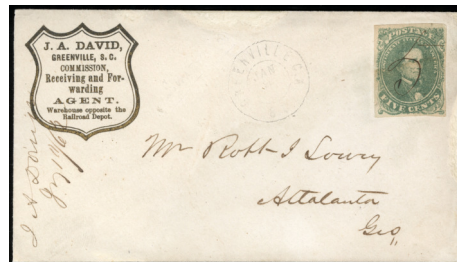 J. A. DAVID,
GREENVILLE, S. C.
COMMISSION,
Receiving and For-
warding
AGENT.
Warehouse opposite the
Railroad Depot.
POSTAGE
FIVE CENTS
Mr Robt I Lowry
Attalanta
Geo
J A David